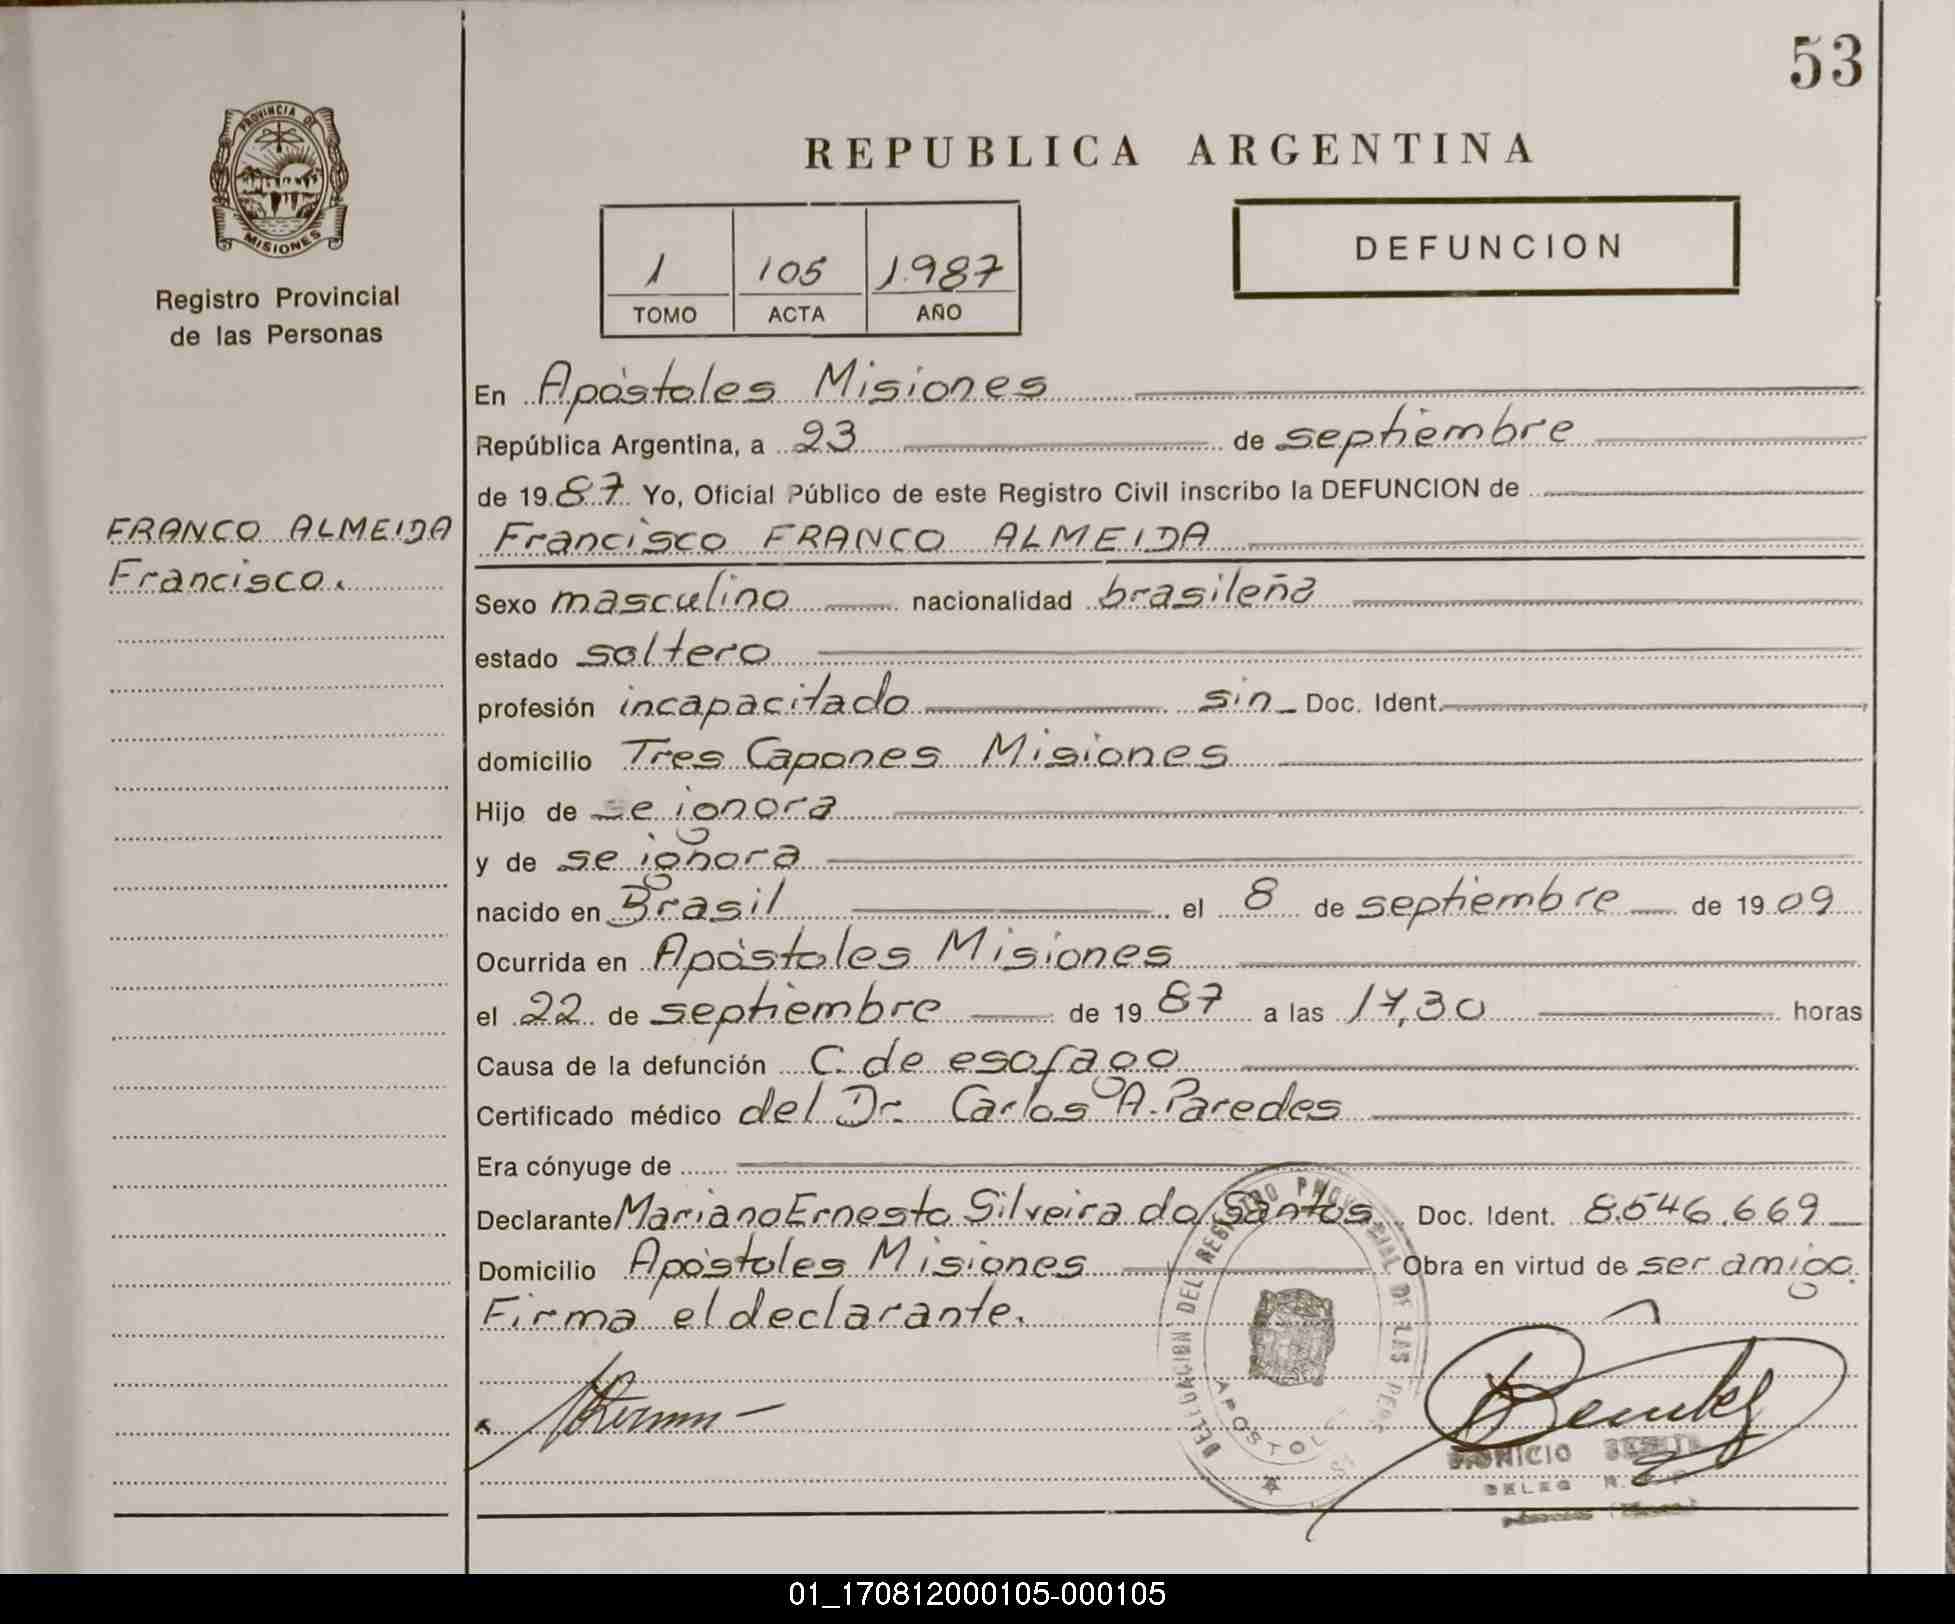 53
PROVINCIA DE
MISIONES
Registro Provincial
de las Personas
REPUBLICA ARGENTINA
1 105 1987
TOMO ACTA AÑO
DEFUNCION
FRANCO ALMEIDA
Francisco.
En Apóstoles Misiones
República Argentina, a 23 de septiembre
de 1987 Yo, Oficial Público de este Registro Civil inscribo la DEFUNCION de
Francisco FRANCO ALMEIDA
Sexo masculino nacionalidad brasileña
estado soltero
profesión incapacitado sin Doc. Ident.
domicilio Tres Capones Misiones
Hijo de se ignora
y de se ignora
nacido en Brasil el 8 de septiembre de 1909
Ocurrida en Apóstoles Misiones
el 22 de septiembre de 1987 a las 17,30 horas
Causa de la defunción C. de esofago
Certificado médico del Dr. Carlos A. Paredes
Era cónyuge de
Declarante Mariano Ernesto Silveira do Santos Doc. Ident. 8.546.669
Domicilio Apóstoles Misiones Obra en virtud de ser amigo.
Firma el declarante.
DELEGACION DEL REGISTRO PROVINCIAL DE LAS PERS
APOSTOLES
DIONICIO
DELEG R.
01_170812000105-000105